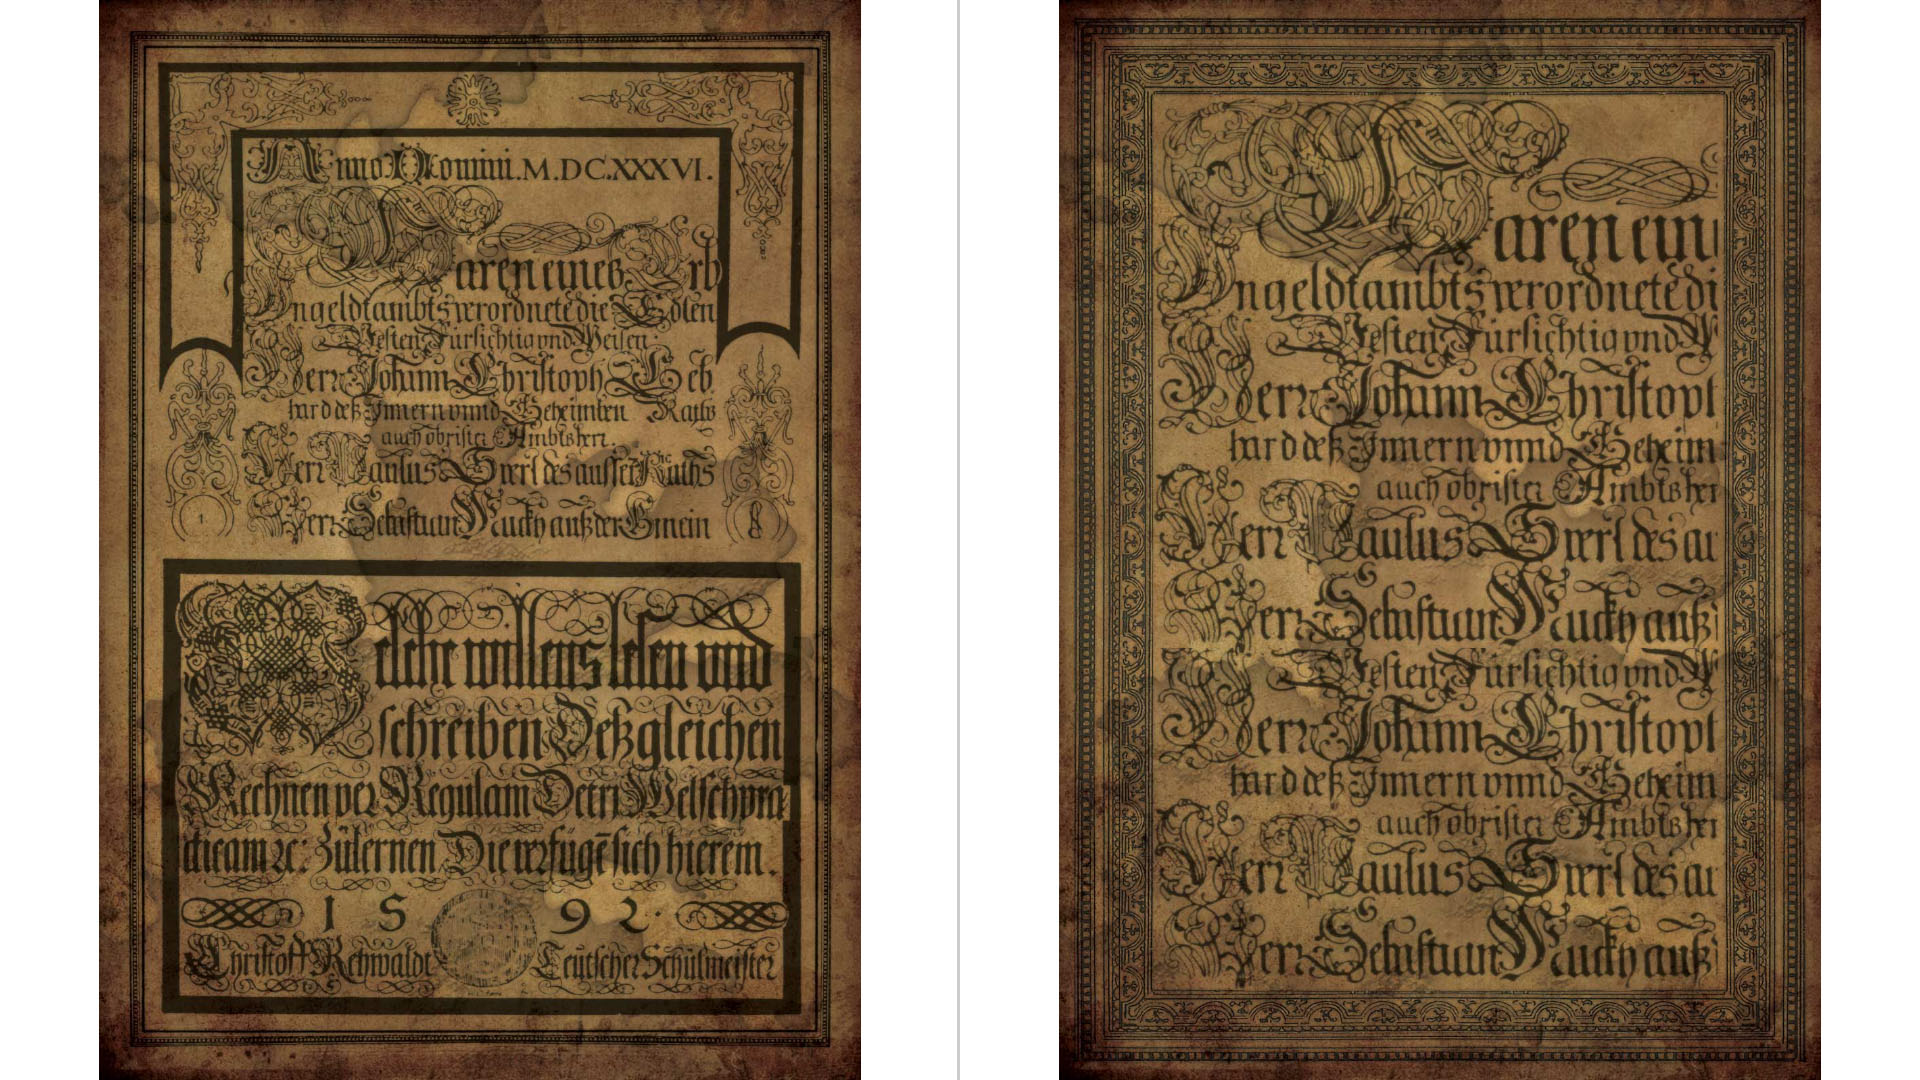 Anno Domini. M.DC.XXXVI.
Waren eines Erb
Ungeldtambts verordnete die Edlen
Vesten Fürsichtig vnd Weisen
Herr Johann Christoph Geb
hard deß Innern vnnd Geheimben Raths
auch obrister Ambtsherr.
Herr Paulus des ausser Raths
Herr Sebastian auß der Gmein
1
8
Welche willens lesen und
schreiben Deßgleichen
Rechnen per Regulam Detri Welsch pra
cticam ꝛc: Zülernen Die verfügē sich hierein.
1592.
Christoff Rehwaldt Teutscher Schulmeister
Waren ein
Ungeldtambts verordnete di
Vesten Fürsichtig vnd W
Herr Johann Christoph
hard deß Innern vnnd Geheim
auch obrister Ambtsherr
Herr Paulus des au
Herr Sebastian auß
Vesten Fürsichtig vnd W
Herr Johann Christoph
hard deß Innern vnnd Geheim
auch obrister Ambtsherr
Herr Paulus des au
Herr Sebastian auß